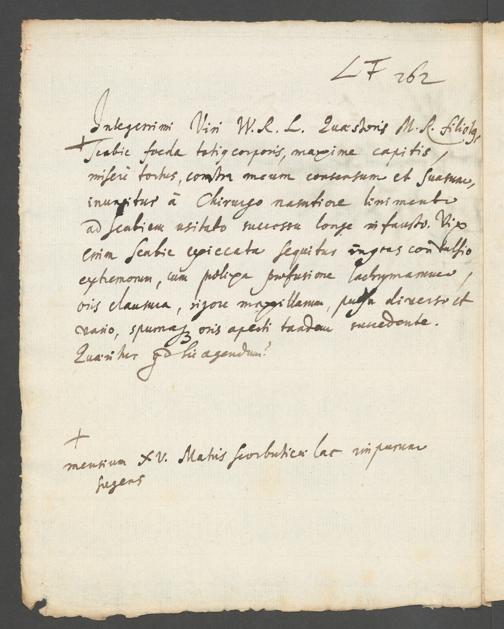 LF 262
Integerrimi Viri W. R. L. Quæstoris M. R. filiolq,
+ scabie foeda totiq corporis, maxime capitis,
miserè tortus, contra meum consensum et suasum,
inungitur à Chirurgo linimento
ad scabiem usitato successu longè infausto. Vix
enim scabie exiccata sequitur ingens convulsio
extremorum, cum prolixa profusione lachrymarum,
oris clausura, rigore maxillarum, pulsu diverso et
vario, spumaq oris aperti tandem succedente.
Quæritur qd hic agendum?
+
mensium XV. Matris scorbuticæ lac impurum
sugens